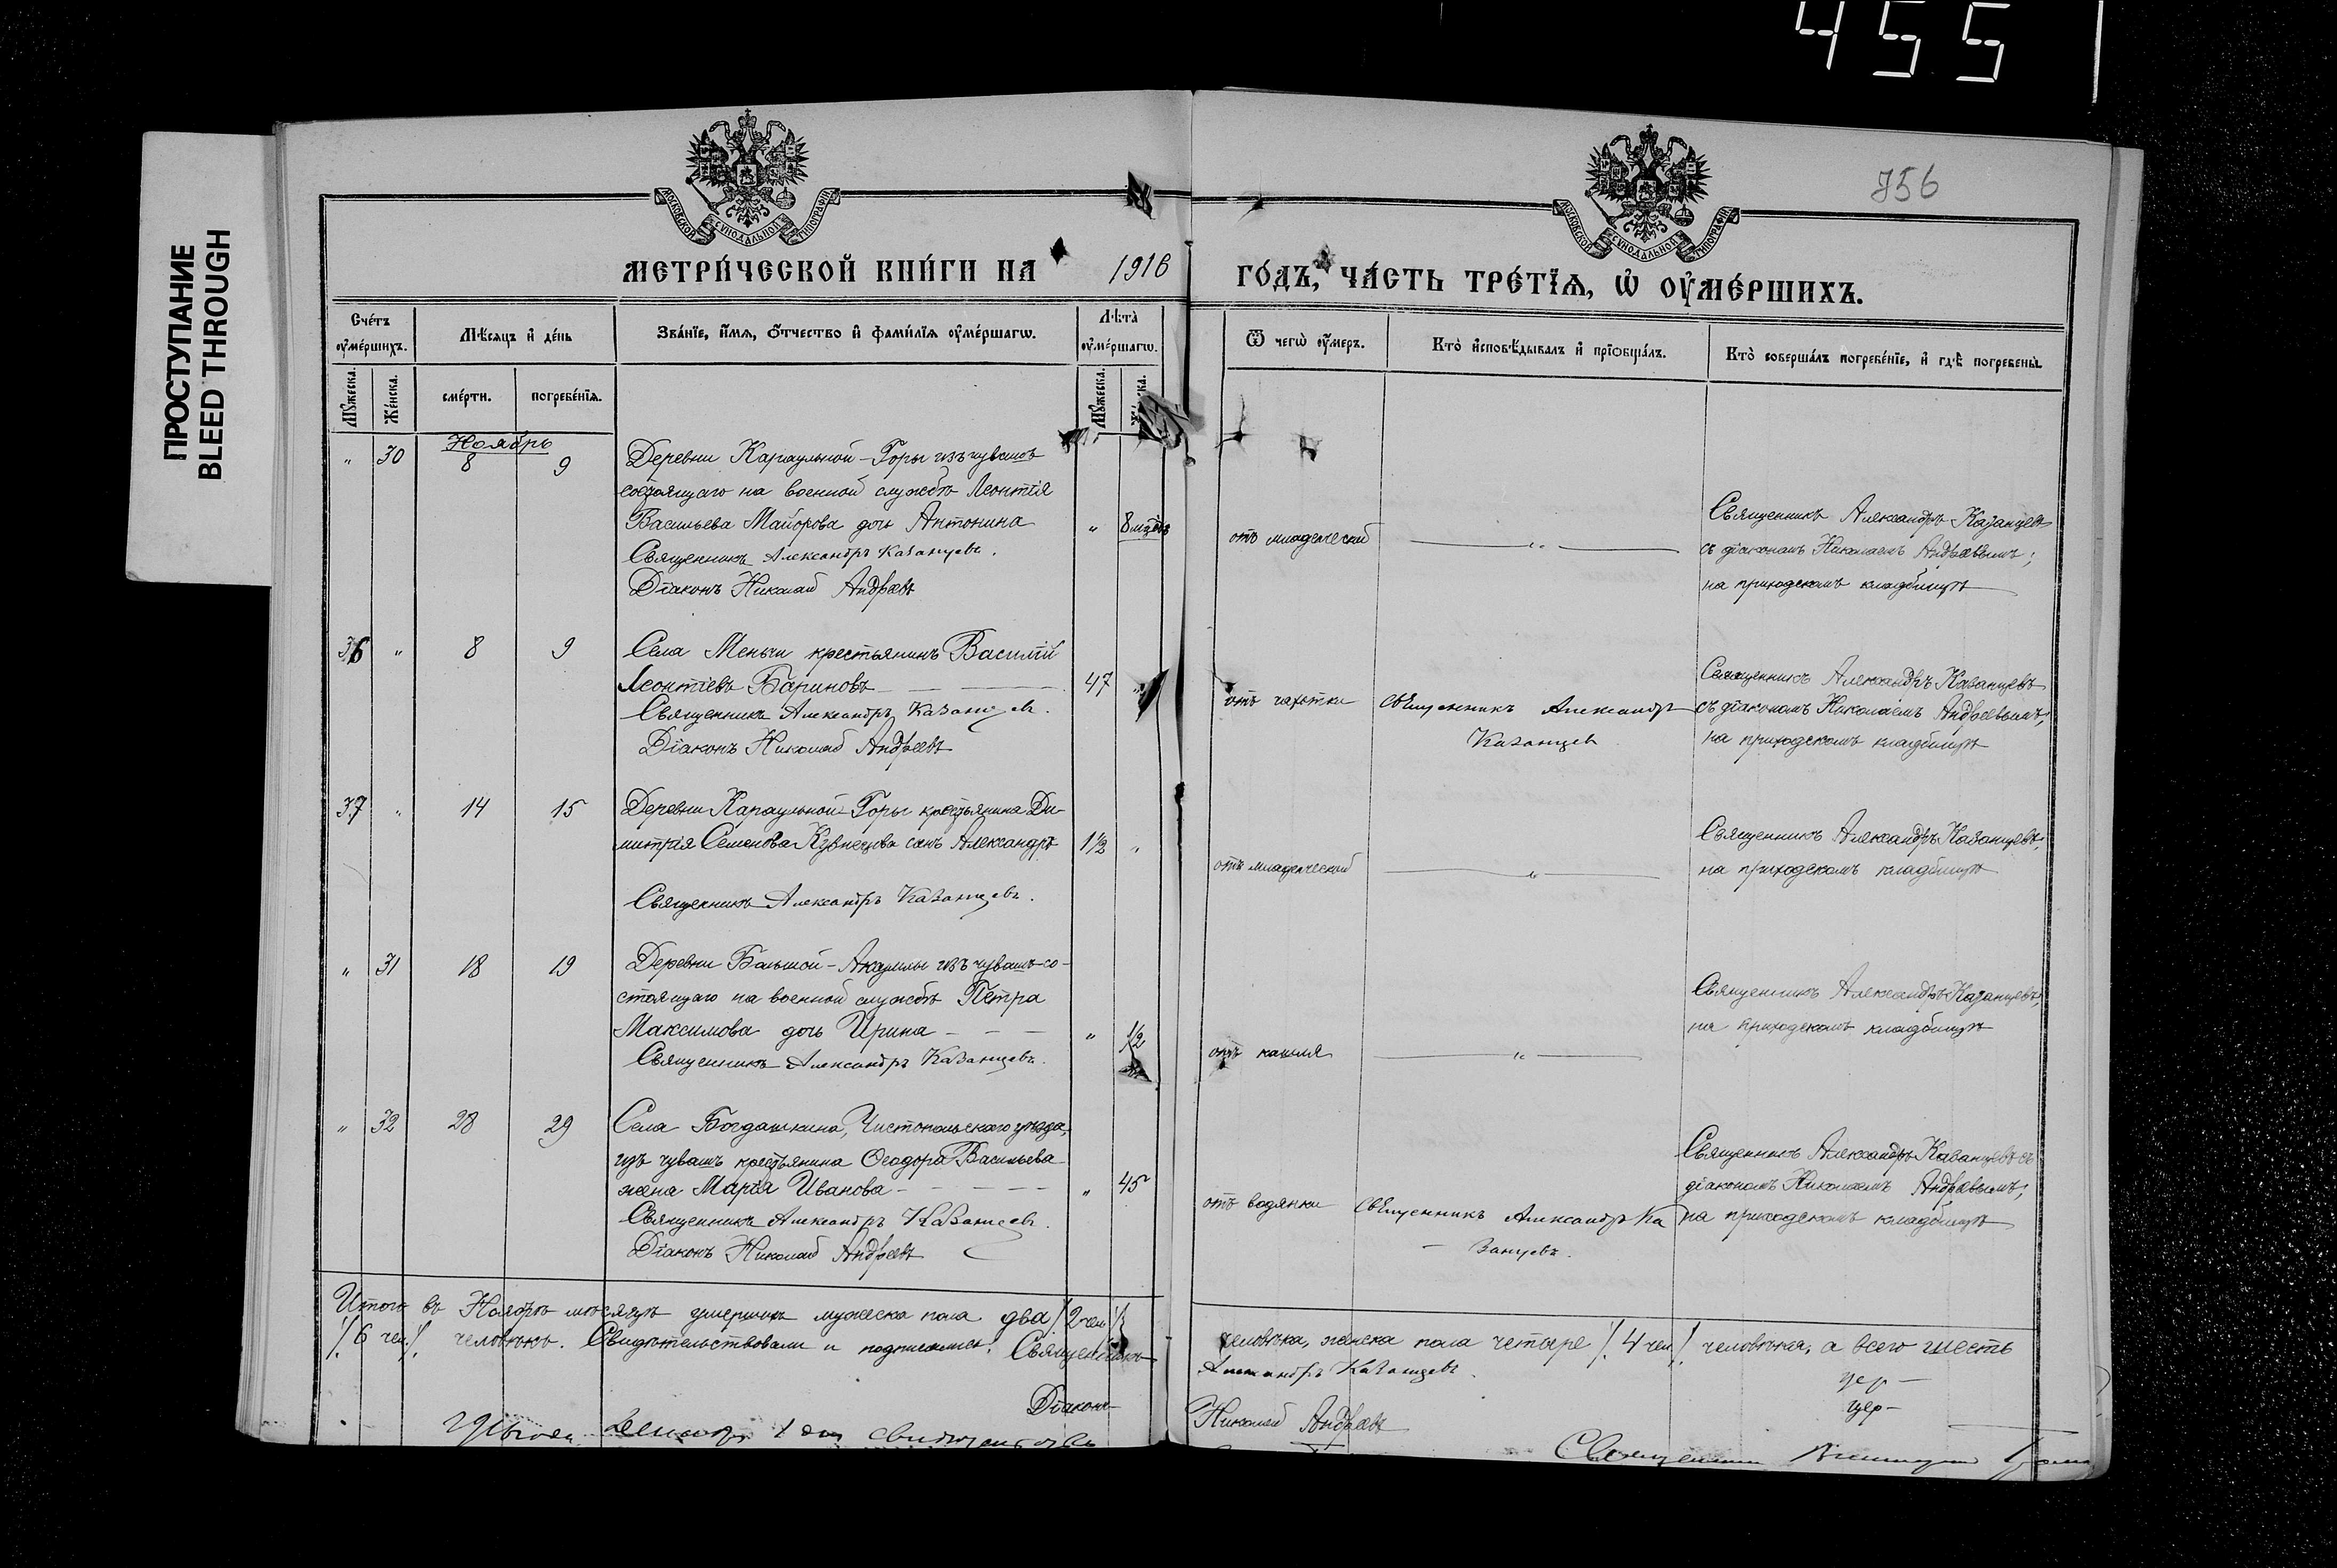 455
ПРОСТУПАНИЕ
BLEED THROUGH
756
МОСКОВСКОЙ СѴНОДАЛЬНОЙ ТИПОГРАФІИ
МОСКОВСКОЙ СѴНОДАЛЬНОЙ ТИПОГРАФІИ
МЕТРИ́ЧЕСКОЙ КНИ́ГИ НА 1916 ГО́ДЪ, ЧА́СТЬ ТРЕ́ТІЯ, Ѡ ОУМЕ́РШИХЪ.
Сче́тъ оуме́ршихъ.
Мꙋжеска.
Же́нска.
Мѣсяцъ и де́нь
сме́рти.
погребе́нїя.
Зва́нїе, и́мя, о́тчество и фами́лїя оуме́ршагѡ.
Лѣта̀ оуме́ршагѡ.
Мꙋжеска.
Ѿ чегѡ̀ оу́меръ.
Кто̀ исповѣ́дывалъ и прїѡбща́лъ.
Кто̀ соверша́лъ погребе́нїе, и гдѣ̀ погребены̀.
Ноябрь
" 30 8 9 Деревни Караульной-Горы изъ чувашъ
состоящаго на военной службѣ Леонтія
Васильева Майорова дочь Антонина " 8 мцевъ
Священникъ Александръ Казанцевъ.
Діаконъ Николай Андреевъ
отъ младенческой
"
Священникъ Александръ Казанцевъ
съ діакономъ Николаемъ Андреевымъ;
на приходскомъ кладбищѣ
36 " 8 9 Села Меньчи крестьянинъ Василій
Леонтіевъ Бариновъ 47 "
Священникъ Александръ Казанцевъ.
Діаконъ Николай Андреевъ
отъ чахотки
Священникъ Александръ
Казанцевъ
Священникъ Александръ Казанцевъ
съ діакономъ Николаемъ Андреевымъ;
на приходскомъ кладбищѣ
37 " 14 15 Деревни Караульной-Горы крестьянина Ди-
митрія Семенова Кузнецова сынъ Александръ 1½ "
Священникъ Александръ Казанцевъ.
отъ младенческой
"
Священникъ Александръ Казанцевъ;
на приходскомъ кладбищѣ
" 31 18 19 Деревни Большой- изъ чувашъ со-
стоящаго на военной службѣ Петра
Максимова дочь Ирина " 1/2
Священникъ Александръ Казанцевъ.
отъ кашля
"
Священникъ Александръ Казанцевъ;
на приходскомъ кладбищѣ
" 32 28 29 Села Богдашкина, Чистопольскаго уѣзда,
изъ чувашъ крестьянина Ѳеодора Васильева
жена Марія Иванова " 45
Священникъ Александръ Казанцевъ.
Діаконъ Николай Андреевъ
отъ водянки
Священникъ Александръ Ка
занцевъ.
Священникъ Александръ Казанцевъ съ
діакономъ Николаемъ Андреевымъ;
на приходскомъ кладбищѣ
Итого въ Ноябрѣ мѣсяцѣ умершихъ мужеска пола два /2 чел/ человѣка, женска пола четыре /4 чел./ человѣка, а всего шесть
/6 чел./ человѣкъ. Свидѣтельствовали и подписались: Священникъ Александръ Казанцевъ.
Діаконъ Николай Андреевъ
Священникъ